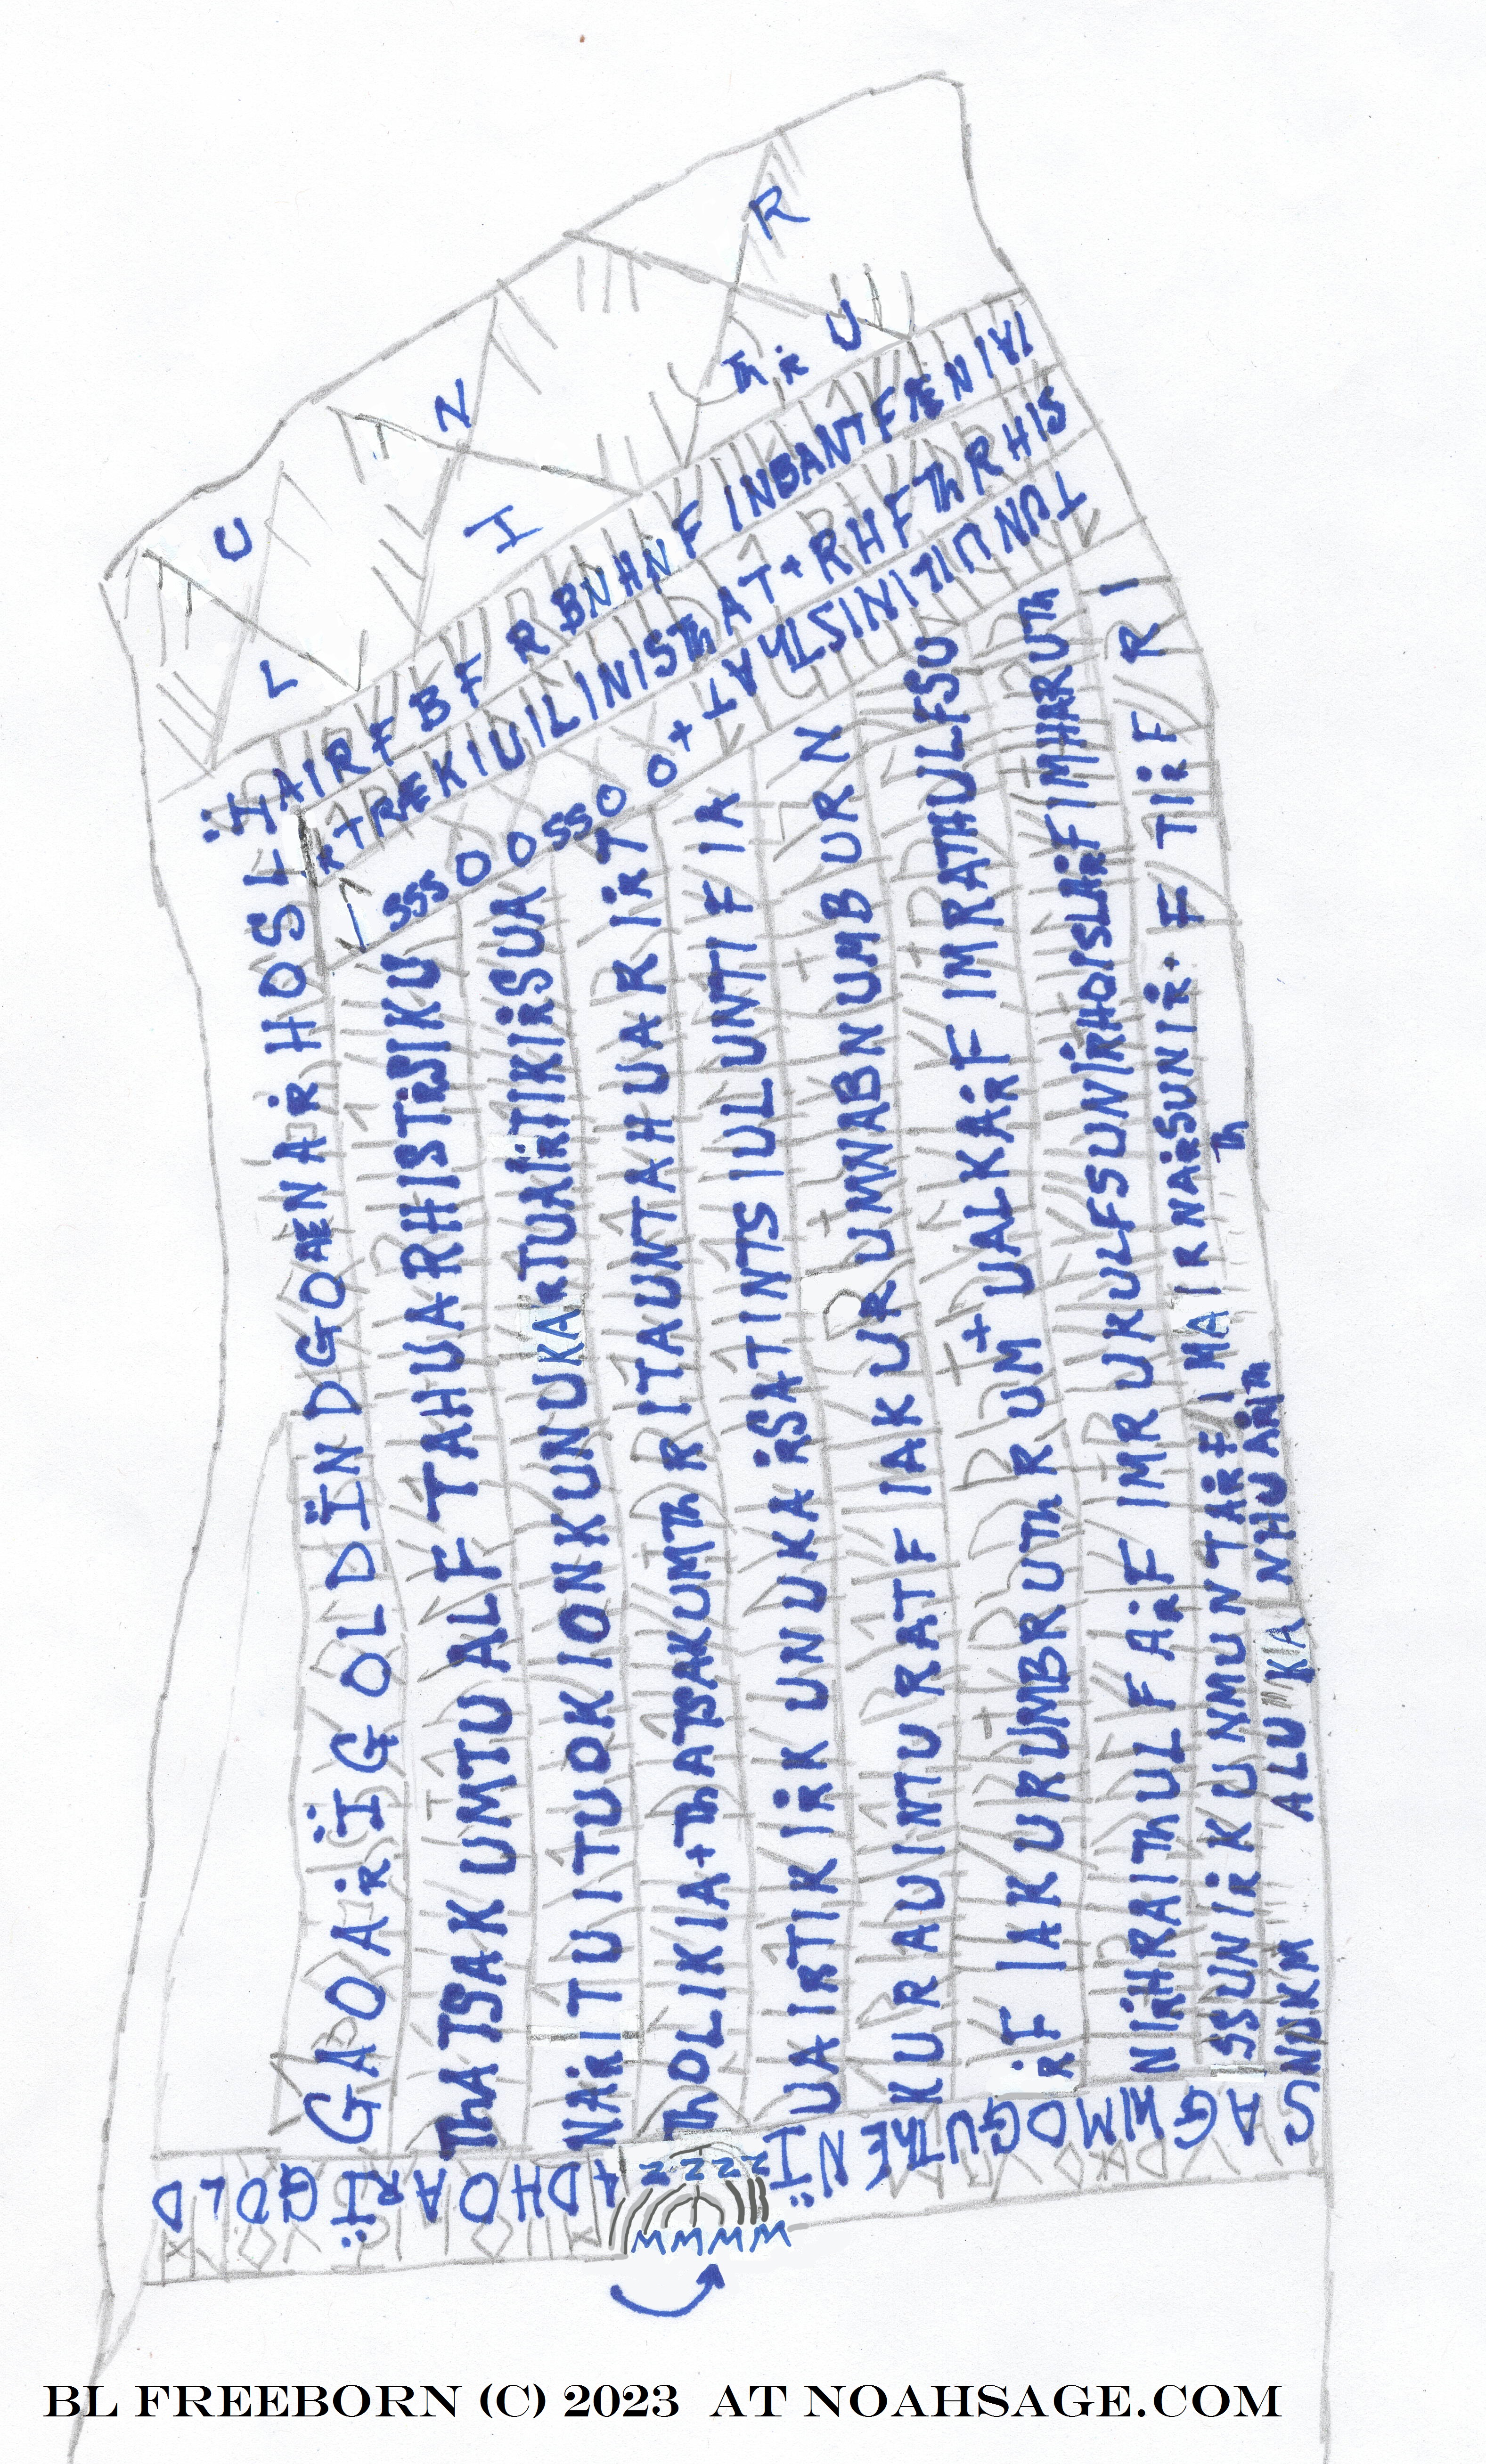 U
L
N
I
R
Th R U
AIRF BF R BNHNF INBANTFÆNIVI
R+RÆKIUILINISThAT+RHFThRHIS
I SSS O O SS O O + TAThTSINITIUNUT
GAOARÏGOLDÏNDGOÆNARHOSLÏ
ThATSAKUMTUALFTAHUARHISTRSIKU
NARITUITUOKIONKUNUKARTUAIRTIKIRSUA
ThOLIKIA+ThATSAKUMThRITAUNTAHUARIRT
UAIRTIKIRKUNUKARSATINTSIULUNTIFIR
KURAUINTURATFIAKURUMWABNUMBURN
RFIAKURUMBRUThRUM+UALKARFIMRATHULFSU
NIRHRAIThULFARFIMRURULFSUNIRHOISLARFIMHARUTh
SSUNIRKUNMUNTARFIMAIRNARSUNIR. FTIRF RI
NUKM ALUKANHUARITh
Th
DLOGÏRAOHD4
ZZZZZ
MMMMM
ÏNEThUGOMWGAS
BL FREEBORN (C) 2023 AT NOAHSAGE.COM